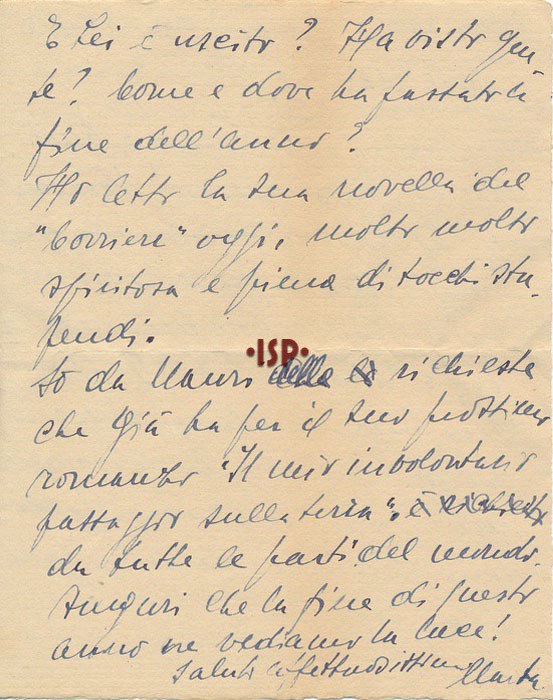 E Lei è uscito? Ha visto gen-
te? Come e dove ha passato la
fine dell'anno?
Ho letto la sua novella del
"Corriere" oggi, molto molto
spiritosa e piena di tocchi stu-
pendi.
•ISP•
So da Mauri della richiesta
che già ha per il suo prossimo
romanzo "Il mio involontario
passaggio sulla terra",
da tutte le parti del mondo.
Auguri che la fine di questo
anno ne vediamo la luce!
Saluti affettuosissimi Marta